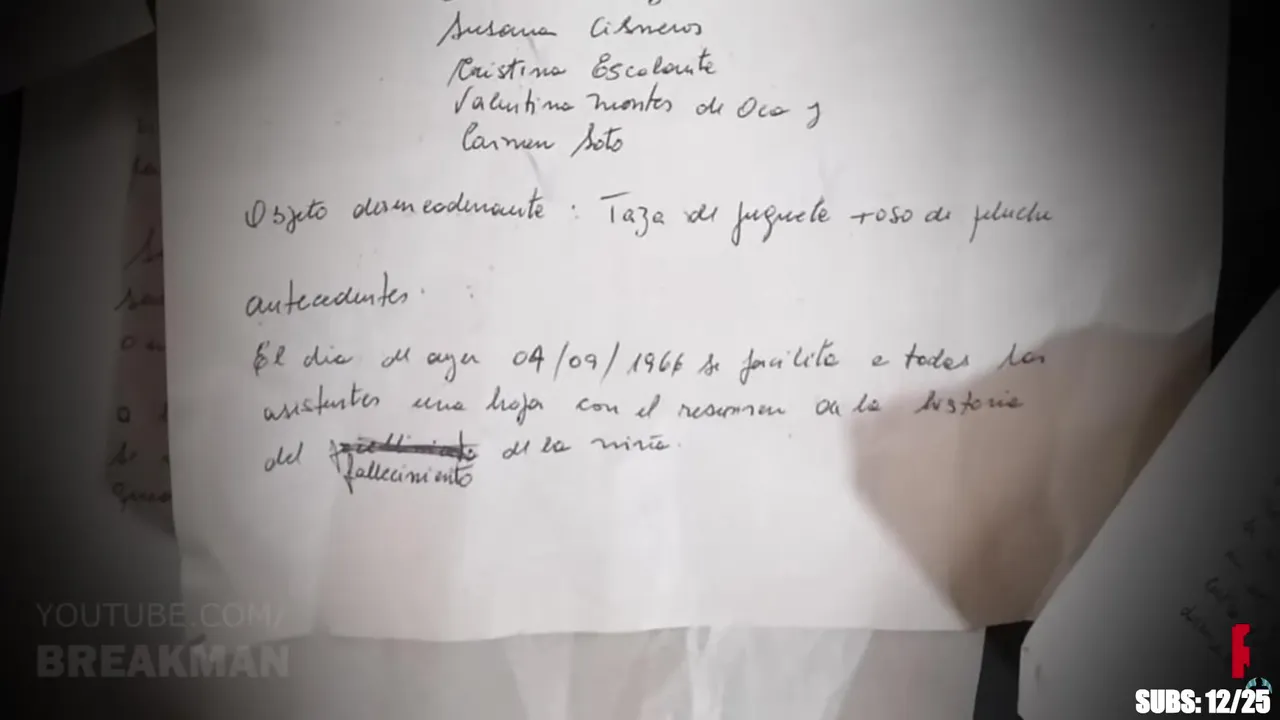 Susana Cisneros
Cristina Escalante
Valentina Montes de Oca y
Carmen Soto
Objeto desencadenante : Taza de juguete rosa de peluche
antecedentes.
El dia de ayer 04/09/1966 se facilita a todas las
asistentes una hoja con el resumen de la historia
del fallecimiento de la niña.
YOUTUBE.COM/
BREAKMAN
SUBS: 12/25